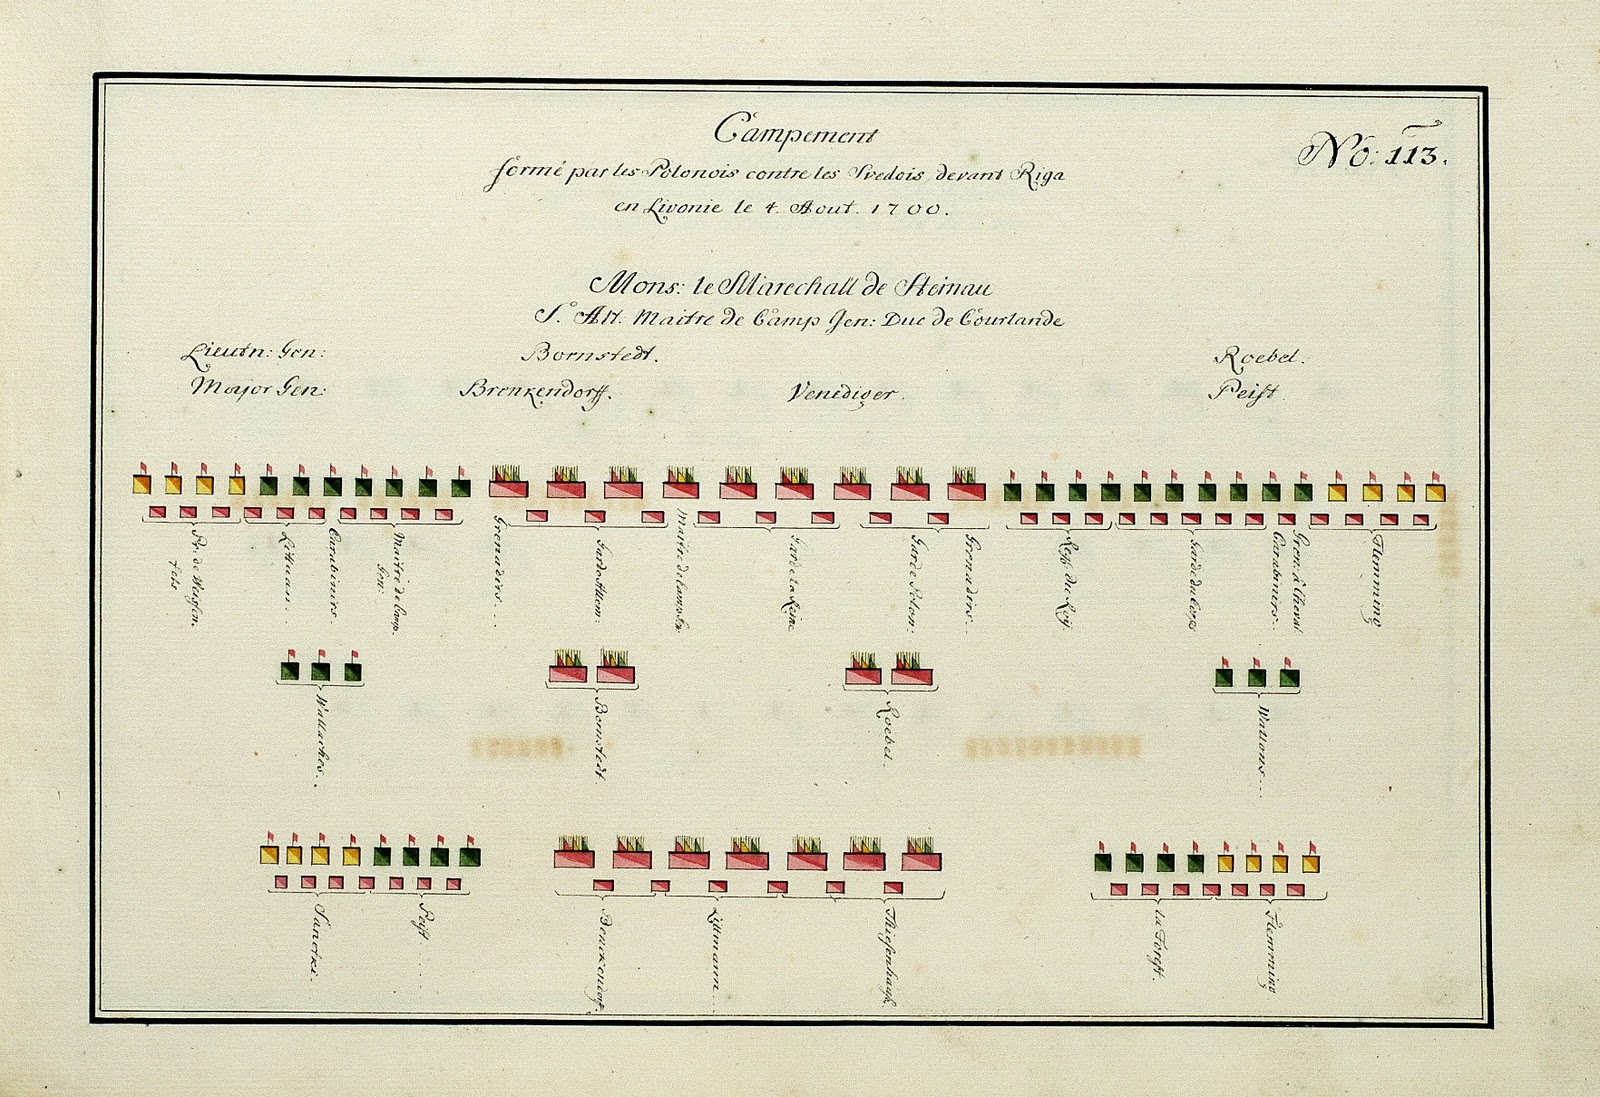 Campement
No: 113.
formé par les Polonois contre les Svedois devant Riga
en Livonie le 4. Aout. 1700.
Mons: le Marechall de Steinau
S. Alt. Maitre de Camp Gen: Duc de Courlande
Lieutn: Gen: Bornstedt. Roebel.
Major Gen: Brenkendorff. Venediger. Peist
Pr. de Weissen.
fels
Littuan.
Carabinirs.
Maitre de Camp.
Gen:
Grenadirs.
Garde
Maitre de
Garde la Reine
Garde Polon:
Grenadirs.
du Roÿ.
Garde du Corps
Carabiners.
Gren: à Cheval
Flemming
Wallaches.
Bornstedt.
Roebel.
Wallons
Sanotki.
Peist.
Benckendorf.
Littmann
Thiesenhauss.
la Forest.
Flemming